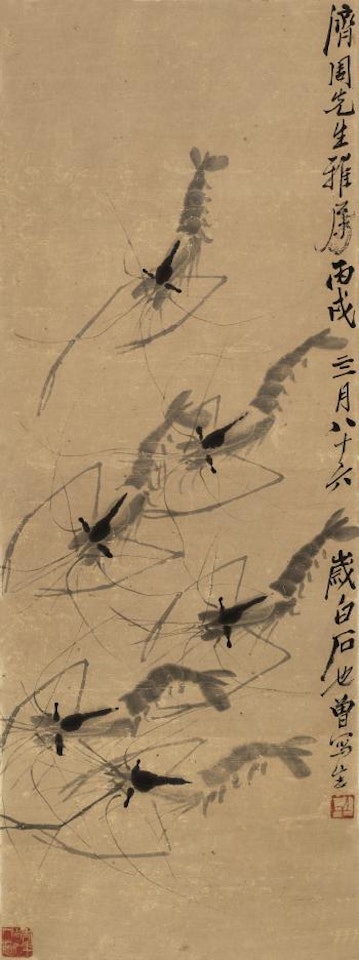 濟周先生雅屬丙戌三月八十六歲白石也曾寫生